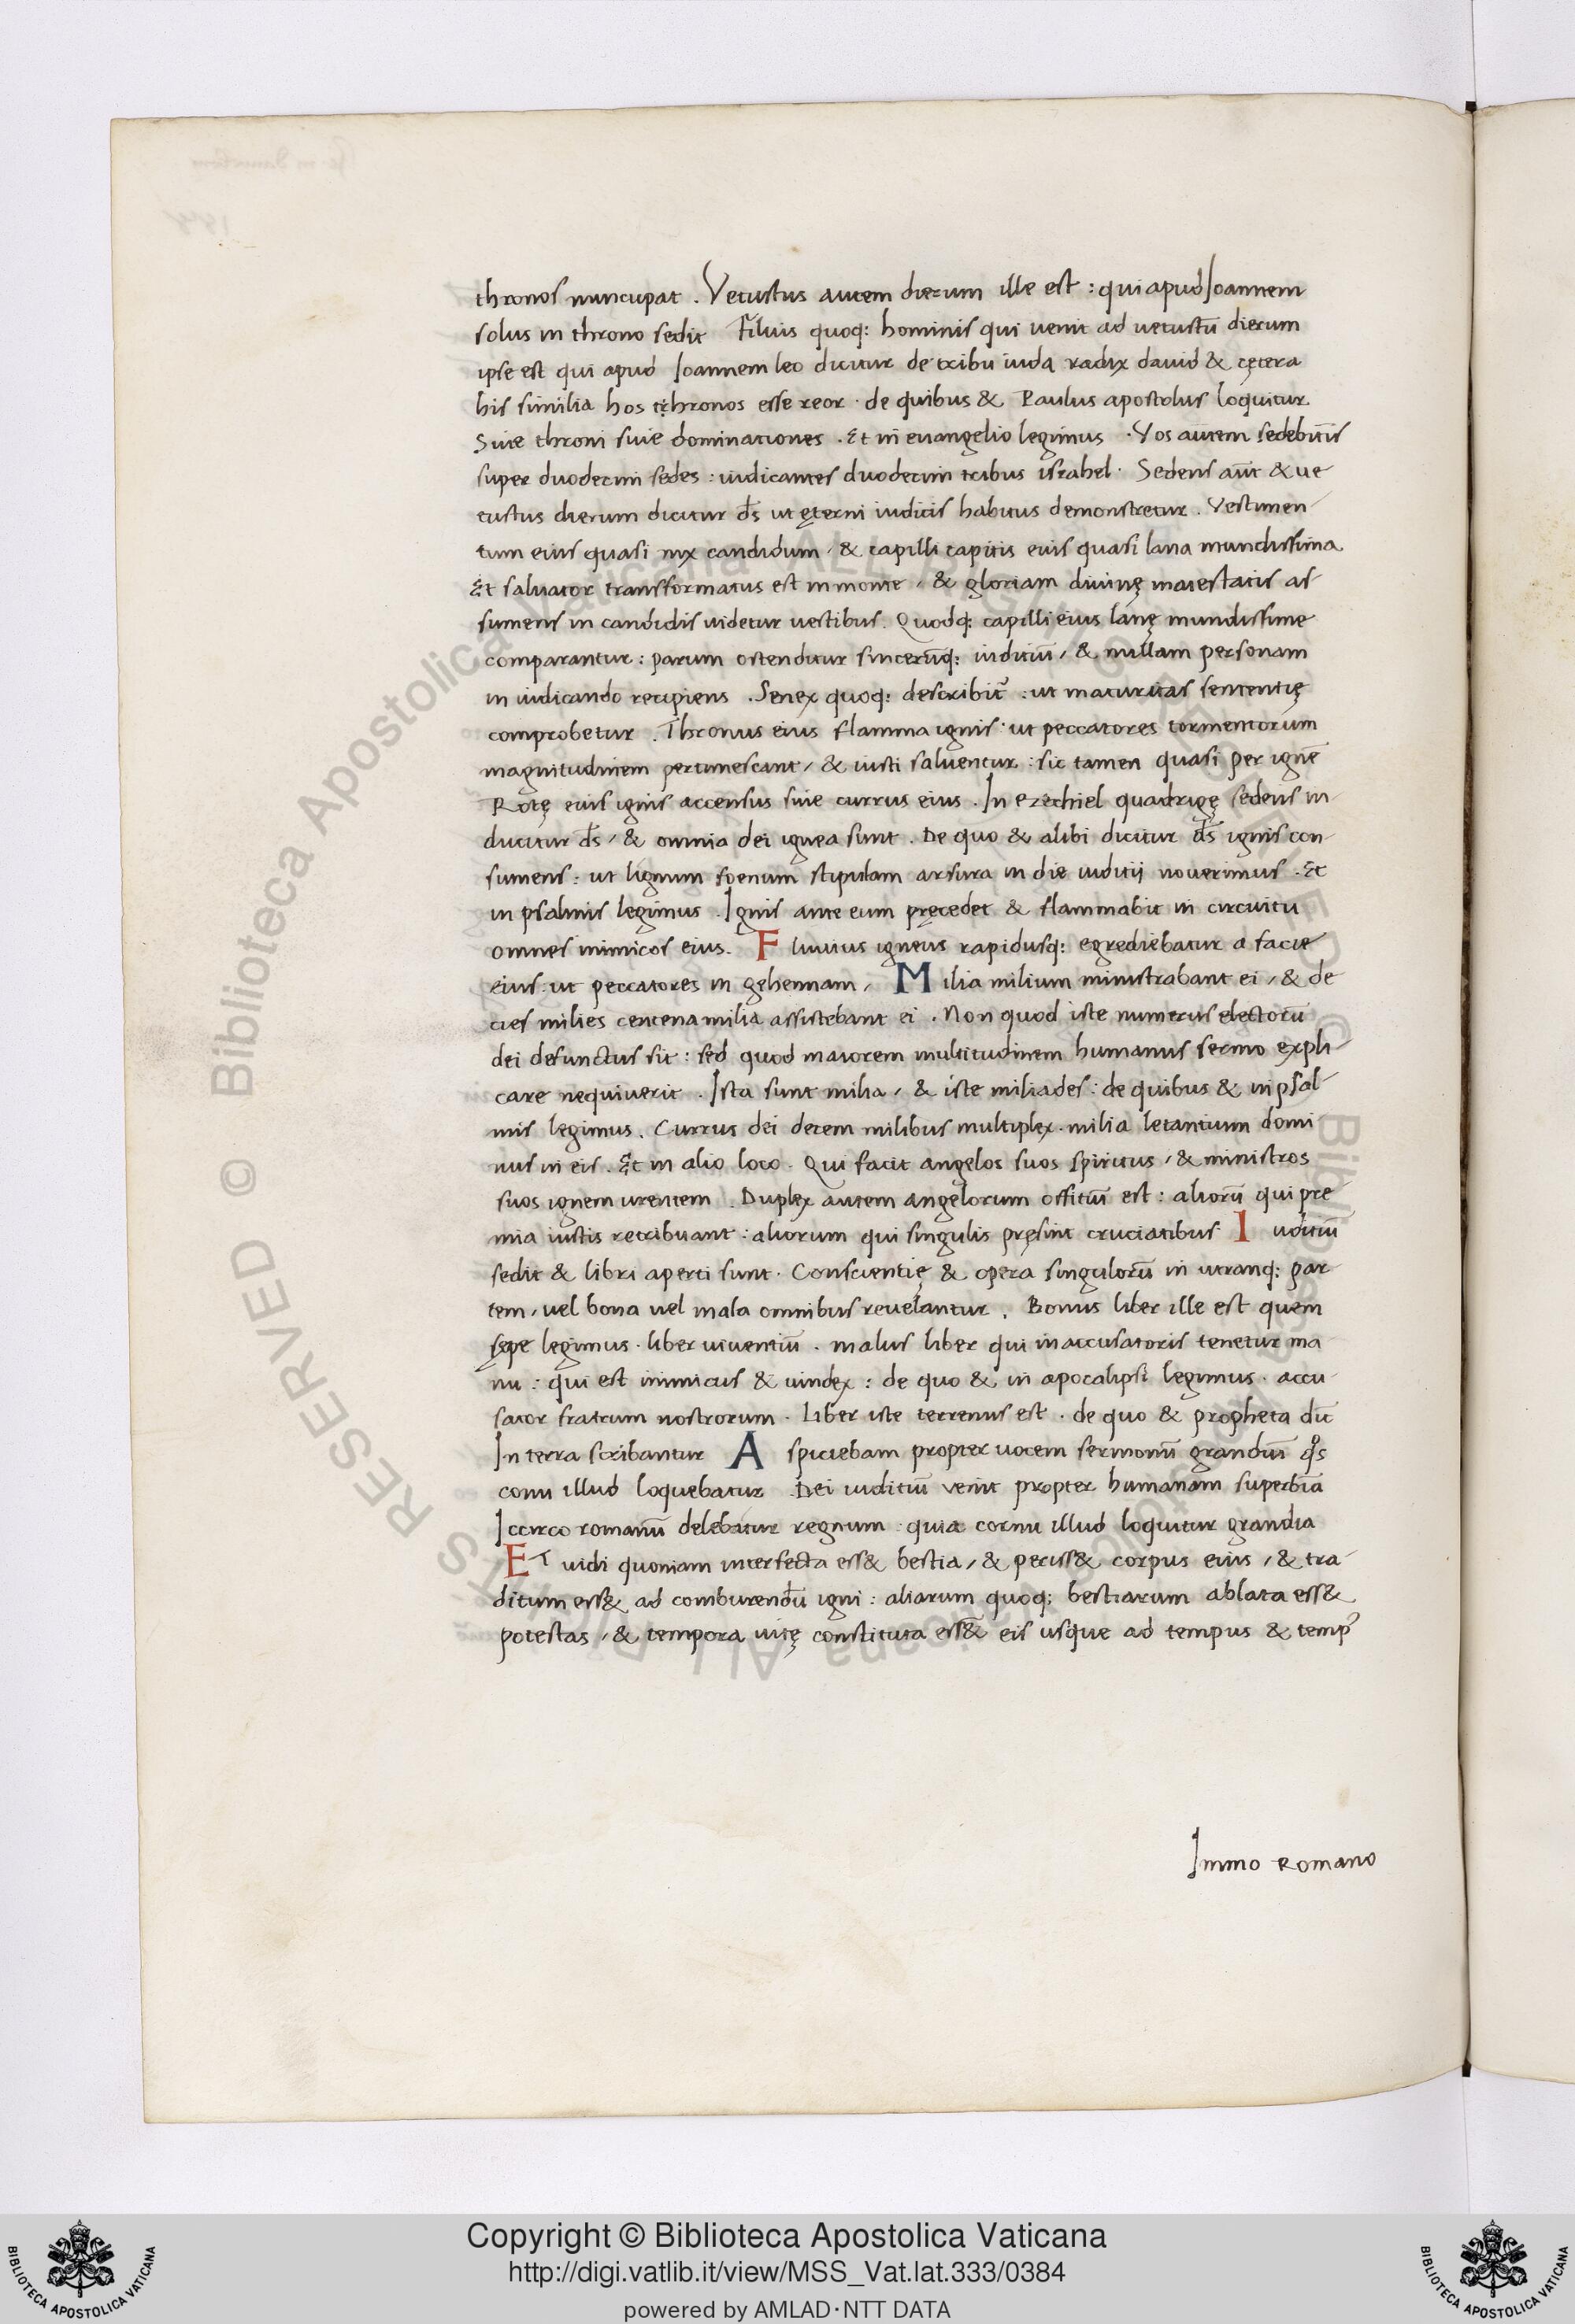 thronos nuncupat . Vetustus autem dierum ille est : qui apud Ioannem
solus in throno sedit Filius quoq: hominis qui uenit ad uetustū dierum
ipse est qui apud Ioannem leo dicitur de tribu iuda radix dauid & cętera
his similia hos thronos esse reor · de quibus & Paulus apostolus loquitur
Siue throni siue dominationes . Et in euangelio legimus . Vos autem sedebitis
super duodecim sedes : iudicantes duodecim tribus israhel · Sedens aūt & ue
tustus dierum dicitur d̄s ut ęterni iudicis habitus demonstretur . Vestimen
tum eius quasi nix candidum / & capilli capitis eius quasi lana mundissima
Et saluator transformatus est in monte / & gloriam diuinę maiestatis as
sumens in candidis uidetur uestibus . Quodq: capilli eius lanę mundissime
comparantur : parum ostenditur sincerūq: iuditiū / & nullam personam
in iudicando recipiens . Senex quoq: describit̄ : ut maturitas sententię
comprobetur . Thronus eius flamma ignis · ut peccatores tormentorum
magnitudinem pertimescant / & iusti saluentur : sic tamen quasi per ignē
Rotę eius ignis accensus siue currus eius . In ezechiel quadrigę sedens in
ducitur d̄s / & omnia dei ignea sunt . De quo & alibi dicitur d̄s ignis con-
sumens : ut lignum foenum stipulam arsura in die iuditij nouerimus . Et
in psalmis legimus . Ignis ante eum pręcedet & flammabit in circuitu
omnes inimicos eius . Fluuius igneus rapidusq: egrediebatur a facie
eius : ut peccatores in gehennam / Milia milium ministrabant ei / & de
cies milies centena milia assistebant ei . Non quod iste numerus electorū
dei defunctus sit : sed quod maiorem multitudinem humanus sermo expli-
care nequiuerit . Ista sunt milia / & iste miliades : de quibus & in psal-
mis legimus . Currus dei decem milibus multiplex · milia letantium domi
nus in eis . Et in alio loco . Qui facit angelos suos spiritus / & ministros
suos ignem urentem . Duplex autem angelorum offitiū est : aliorū qui pre
mia iustis retribuant : aliorum qui singulis pręsint cruciatibus Iuditiū
sedit & libri aperti sunt · Conscientię & opera singulorū in utranq: par
tem / uel bona uel mala omnibus reuelantur . Bonus liber ille est quem
sępe legimus · liber uiuentiū . malus liber qui in accusatoris tenetur ma
nu : qui est inimicus & uindex : de quo & in apocalipsi legimus · accu-
sator fratrum nostrorum · Liber iste terrenus est · de quo & propheta dic̄
In terra scribantur Aspiciebam propter uocem sermonū grandiū q̊s
cornu illud loquebatur . Dei iuditiū uenit propter humanam superbiā
Iccirco romanū delebitur regnum : quia cornu illud loquitur grandia
ET uidi quoniam interfecta ess& bestia / & periss& corpus eius / & tra-
ditum ess& ad comburendū igni : aliarum quoq: bestiarum ablata ess&
potestas / & tempora uitę constituta ess& eis usque ad tempus & temp᾿
Immo Romano
Copyright © Biblioteca Apostolica Vaticana
http://digi.vatlib.it/view/MSS_Vat.lat.333/0384
powered by AMLAD·NTT DATA